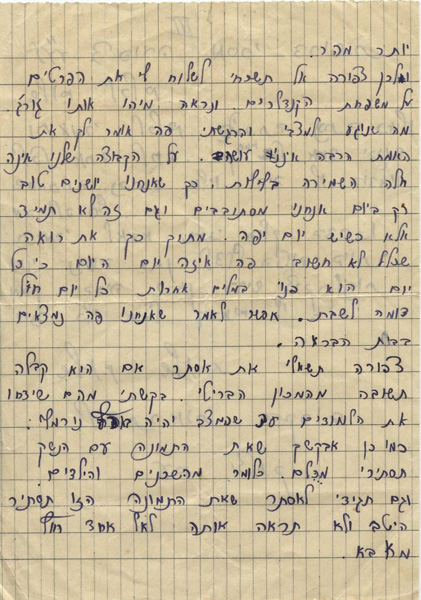 יותר מהר.
ולכן צפורה אל תשכחי לשלוח לי את הפרטים
על משפחת הקנדלרים. ונראה מיהו אותו גורג'.
מה שנוגע למצבי והרגשתי פה אומר לך את
האמת הרבה אינני עושה. על הקבוצה שלנו אינה
חלה השמירה בלילות, כך שאנחנו ישנים טוב
רק ביום אנחנו מסתובבים וגם זה לא תמיד
אלא כשיש יום יפה. מתוך כך את רואה
שכלל לא חשוב פה איזה יום היום. כי כל
יום הוא פנוי במלים אחרות כל יום חול
דומה לשבת. אפשר לאמר שאנחנו פה נמצאים
בבית הבראה.
צפורה תשאלי את אסתר אם הוא קבלה
תשובה מהמכון הבריטי. בקשתי מהם שידחו
את הלמודים עד שהמצב יהיה נורמלי.
כמו כן אבקשך שאת התמונה עם הנשק
תסתירי מכלם. כלומר מהשכנים והילדים.
וגם תגידי לאסתר שאת התמונה הזו תשתיר
היטב ולא תראה אותה לאף אחד חוץ
מ בא.